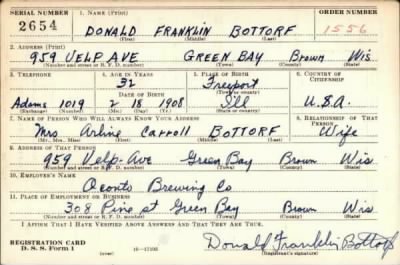 SERIAL NUMBER 1. NAME (Print) ORDER NUMBER
2654 DONALD FRANKLIN BOTTORF 1556
(First) (Middle) (Last)
2. ADDRESS (Print)
959 VELP AVE GREEN BAY BROWN WIS
(Number and street or R. F. D. number) (Town) (County) (State)
3. TELEPHONE 4. AGE IN YEARS 5. PLACE OF BIRTH 6. COUNTRY OF CITIZENSHIP
32 Freeport
DATE OF BIRTH (Town or county)
Adams 1019 2 18 1908 Ill U.S.A.
(Exchange) (Number) (Mo.) (Day) (Yr.) (State or country)
7. NAME OF PERSON WHO WILL ALWAYS KNOW YOUR ADDRESS 8. RELATIONSHIP OF THAT PERSON
Mrs Arline Carroll BOTTORF Wife
(Mr., Mrs., Miss) (First) (Middle) (Last)
9. ADDRESS OF THAT PERSON
959 Velp-Ave Green Bay Brown Wis
(Number and street or R. F. D. number) (Town) (County) (State)
10. EMPLOYER'S NAME
Oconto Brewing Co
11. PLACE OF EMPLOYMENT OR BUSINESS
308 Pine st Green Bay Brown Wis
(Number and street or R. F. D. number) (Town) (County) (State)
I AFFIRM THAT I HAVE VERIFIED ABOVE ANSWERS AND THAT THEY ARE TRUE.
REGISTRATION CARD
D. S. S. Form 1 (over) Donald Franklin Bottorf
(Registrant's signature)